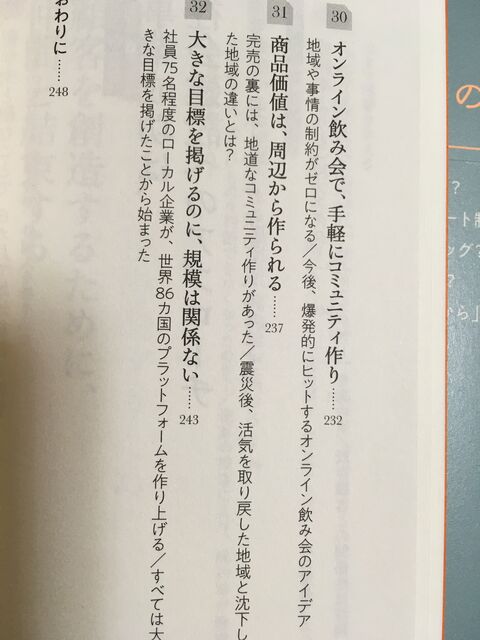 の
?
ート制
ッグ?
?
ら」
30
オンライン飲み会で、手軽にコミュニティ作り……232
地域や事情の制約がゼロになる/今後、爆発的にヒットするオンライン飲み会のアイデア
31
商品価値は、周辺から作られる……237
完売の裏には、地道なコミュニティ作りがあった/震災後、活気を取り戻した地域と沈下し
た地域の違いとは?
32
大きな目標を掲げるのに、規模は関係ない……243
社員75名程度のローカル企業が、世界86カ国のプラットフォームを作り上げる/すべては大
きな目標を掲げたことから始まった
おわりに……248